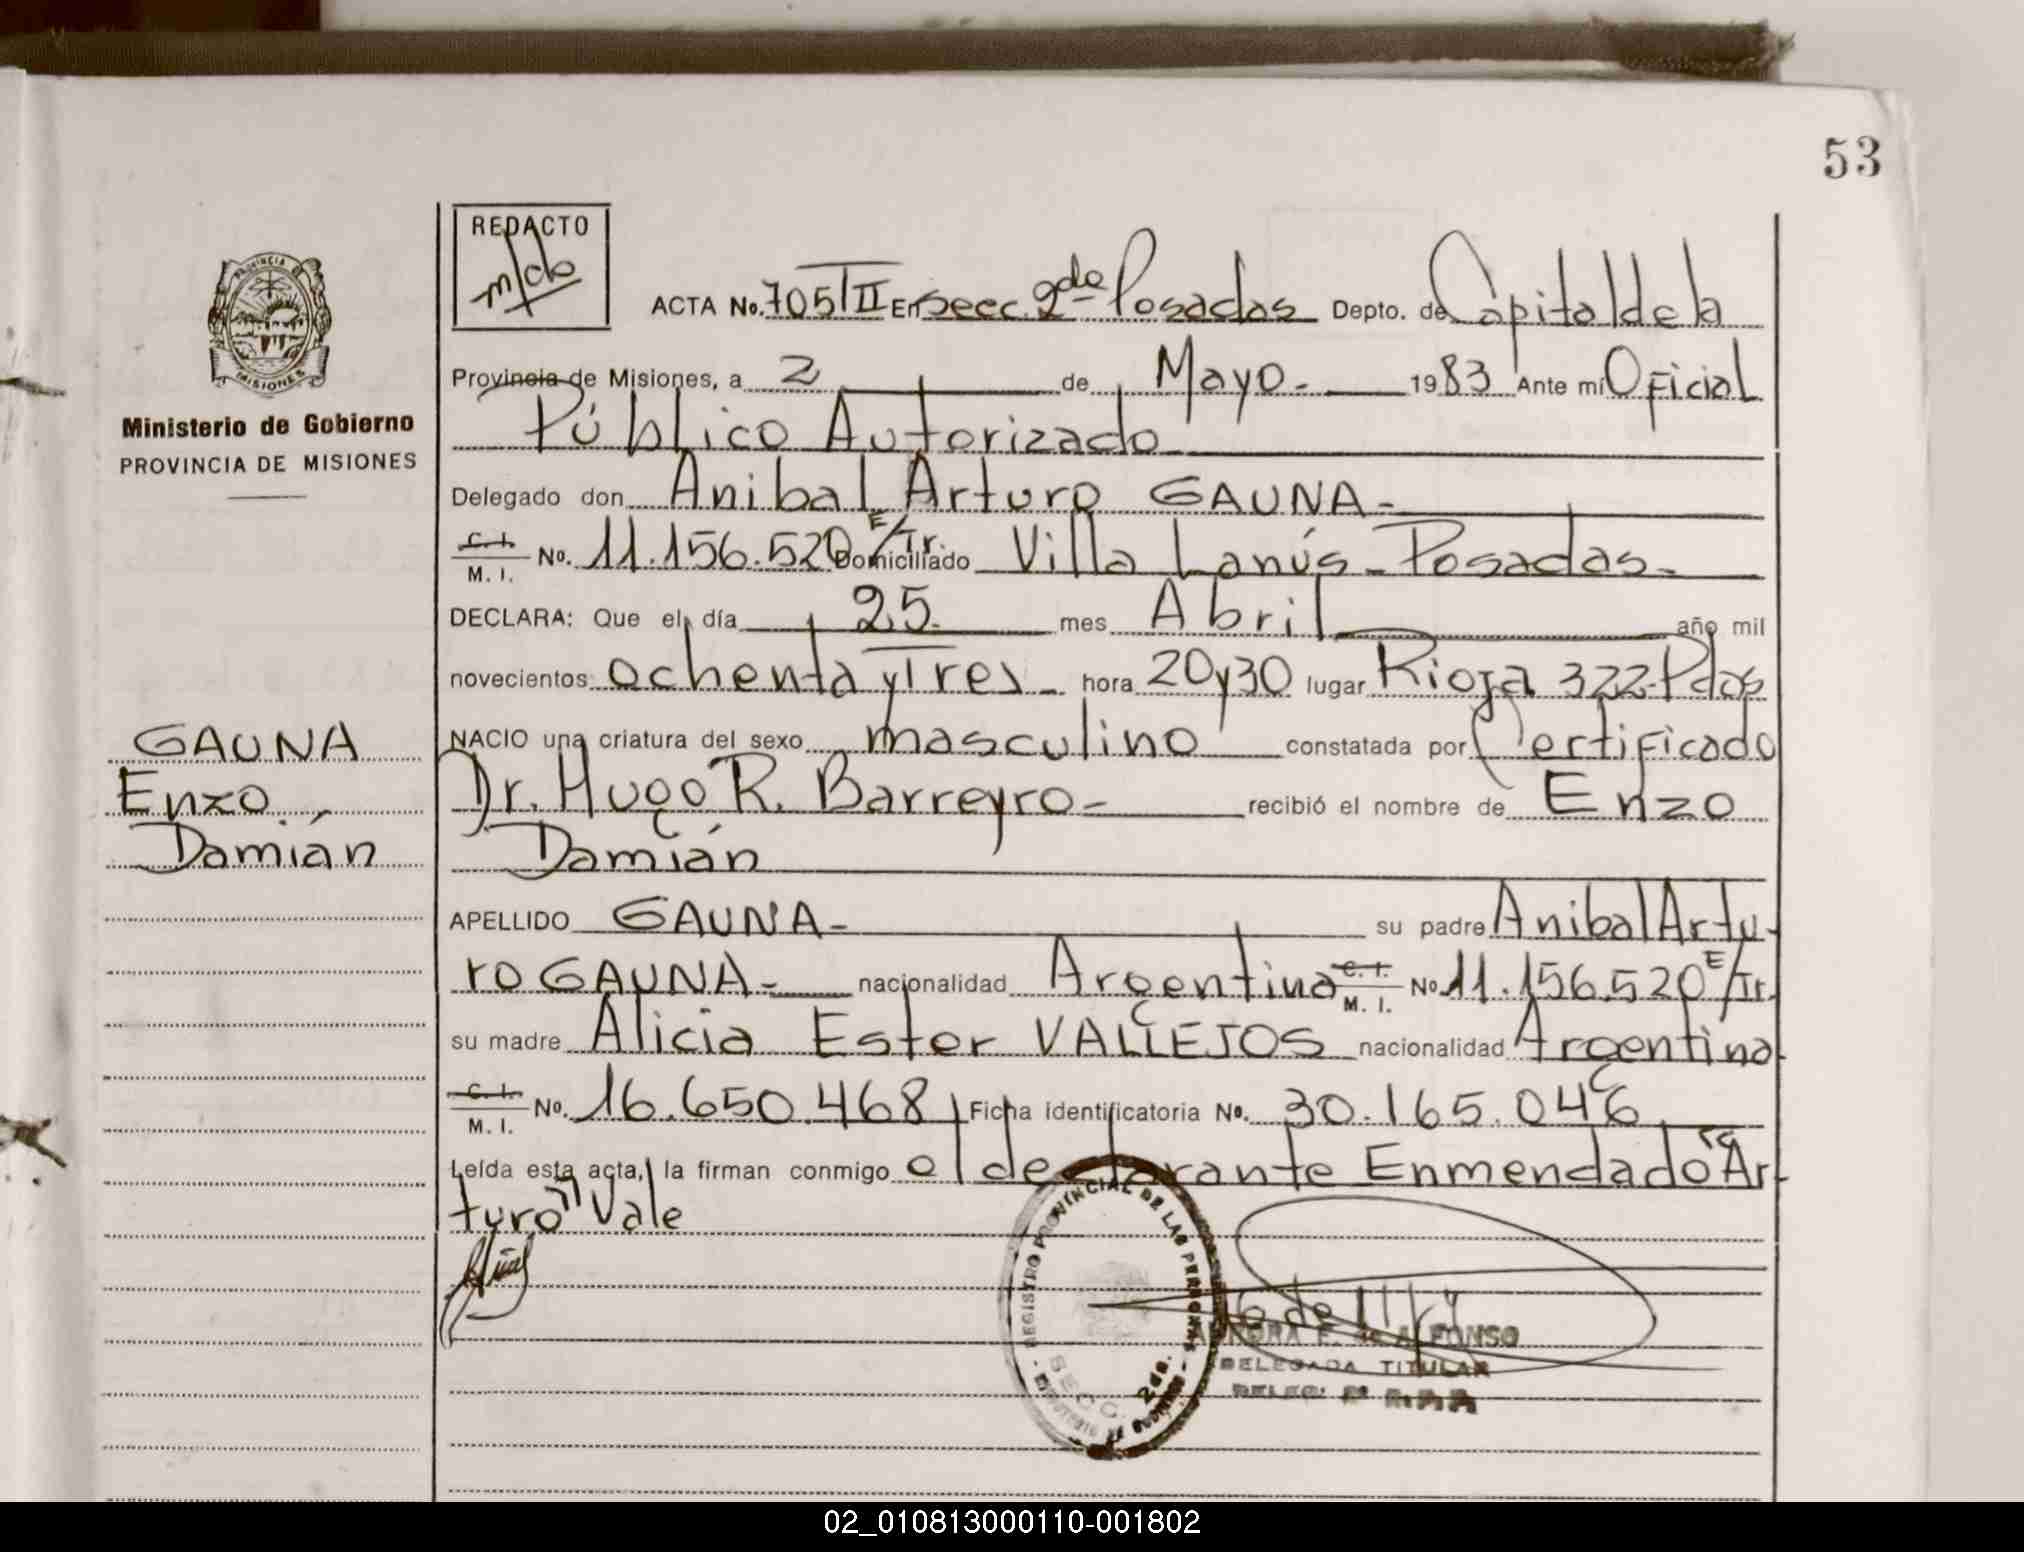 53
REDACTO
ACTA No. 705/II En Secc. 2da Posadas Depto. de Capital de la
PROVINCIA DE
MISIONES
Provincia de Misiones, a 2 de Mayo - 1983 Ante mí Oficial
Ministerio de Gobierno
PROVINCIA DE MISIONES
Público Autorizado
Delegado don Anibal Arturo GAUNA -
C. I. M. I. No. 11.156.520 E/Tr. Domiciliado Villa Lanús - Posadas -
DECLARA: Que el día 25 mes Abril año mil
novecientos ochenta y Tres - hora 20 y 30 lugar Rioja 322 - Pdas
NACIO una criatura del sexo masculino constatada por Certificado
Dr. Hugo R. Barreyro - recibió el nombre de Enzo
Damián
GAUNA
Enzo
Damián
APELLIDO GAUNA - su padre Anibal Artu-
ro GAUNA - nacionalidad Argentina C. I. M. I. No 11.156.520 E/Tr.
su madre Alicia Ester VALLEJOS nacionalidad Argentina
C. I. M. I. No. 16.650.468 Ficha identificatoria No. 30.165.046
Leída esta acta, la firman conmigo el declarante Enmendado "Ar-
turo" Vale
REGISTRO PROVINCIAL DE LAS PERSONAS
SECC. 2da.
E. de ALFONSO
DELEGADA TITULAR
02_010813000110-001802